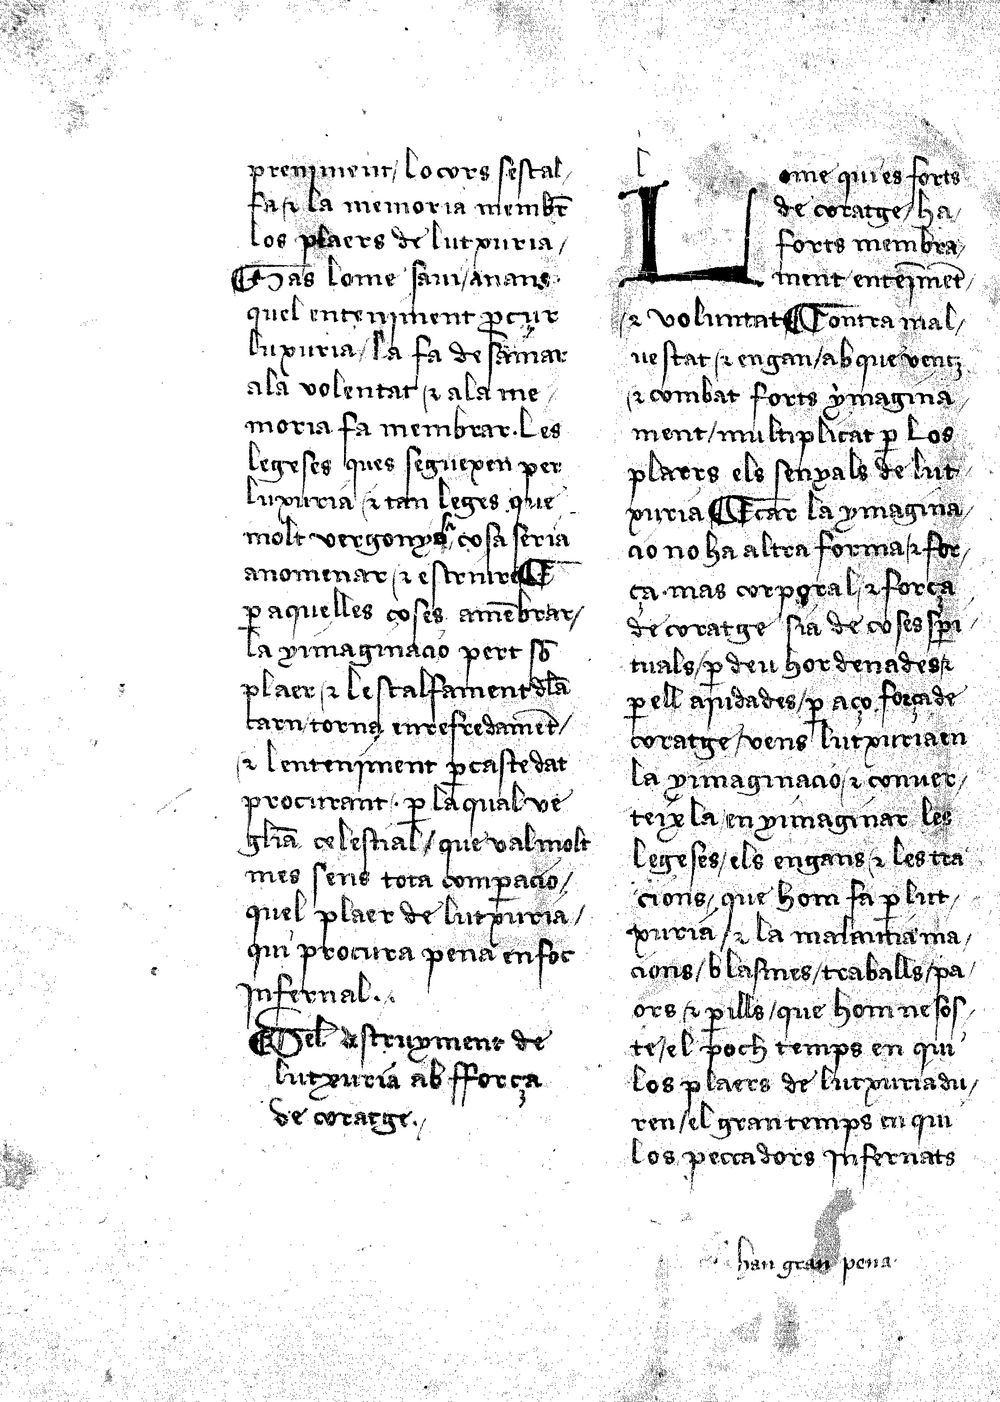 preniment / lo cors sescal /
fa ⁊ la memoria membr̄
los plaers de lutxuria /
¶ Mas lome saui / auans
quel enteniment ꝑcur
luxuria / la fa desamar
ala volentat ⁊ ala me /
moria fa membrar. Les
legeses ques seguexen per
luxuria ⁊ tan leges que
molt vergonyosa cosa seria
anomenar ⁊ escriure ¶
ꝑ aquelles coses amēbrar /
la yimaginacio pert sō
plaer ⁊ lescalfament dla
carn torna enrefredamēt /
⁊ lenteniment ꝑ castedat
procurant . ꝑ la qual ve
gl̄ia celestial / que val molt
mes sens tota comꝑacio /
quel plaer de lutxuria /
qui procura pena en foc
Infernal .
¶ Del destruyment de
lutxuria ab fforça
de coratge .
l
Lome qui es forts
de coratge / ha /
forts membra /
ment entenimēt /
⁊ voluntat ¶ Contra mal /
uestat ⁊ engan / ab que venç
⁊ combat forts ymagina /
ment / multiplicat ꝑ Los
plaers els senyals de lut
xuria ¶ Car la ymagina /
cio no ha altra forma ⁊ for /
ça mas corporal ⁊ força
de coratge sia de coses sp̄i
tuals / ꝑ deu hordenades ⁊
ꝑ ell aiudades / ꝑ aço força de
coratge / vens lutxuria en
la yimaginacio ⁊ conuer /
teix la en yimaginar les
legeses / els engans ⁊ les tra
cions / que hom fa ꝑ lut /
xuria / ⁊ la malautia ma /
cions / blasmes / traballs / pa /
ors ⁊ ꝑills / que hom ne sos /
te / el poch temps en qui
los plaers de lutxuria du /
ren / el gran temps en qui
los peccadors Infernats
han gran pena